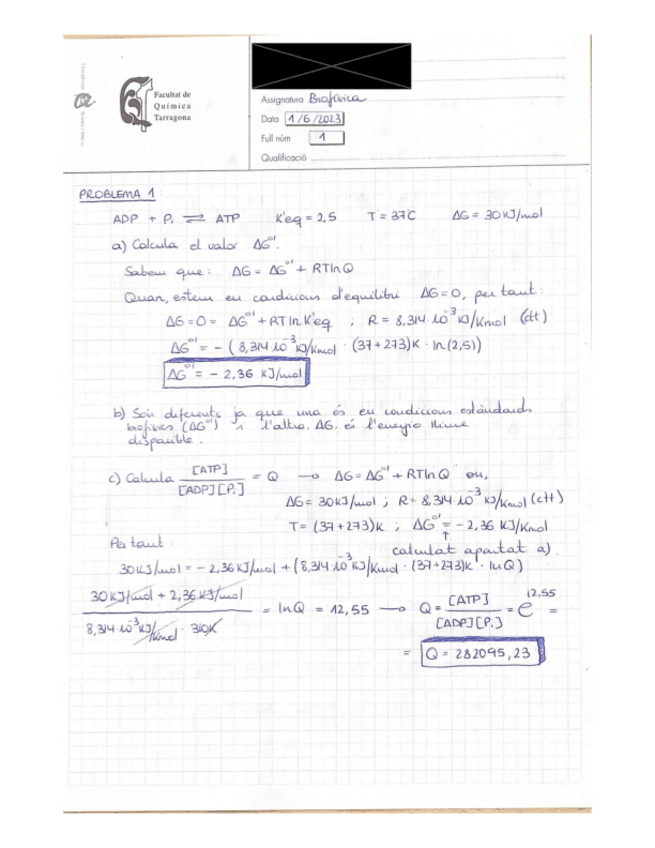 Facultat de
Química
Tarragona
Assignatura Biofísica
Data 1/6/2023
Full núm 1
Qualificació
PROBLEMA 1
ADP + Pi ⇌ ATP K'eq = 2,5 T = 37°C ΔG = 30 KJ/mol
a) Calcula el valor ΔG°'.
Sabem que: ΔG = ΔG°' + RTlnQ
Quan, estem en condicions d'equilibri ΔG=0, per tant:
ΔG = 0 = ΔG°' + RTlnK'eq ; R = 8,314·10⁻³ KJ/Kmol (ctt)
ΔG°' = - (8,314·10⁻³ KJ/Kmol · (37+273)K · ln(2,5))
ΔG°' = - 2,36 KJ/mol
b) Són diferents ja que una és en condicions estàndards
biofísics (ΔG°') i l'altra, ΔG, és l'energia lliure
disponible.
c) Calcula [ATP]/[ADP][Pi] = Q → ΔG = ΔG°' + RTlnQ on,
ΔG = 30KJ/mol ; R = 8,314·10⁻³ KJ/Kmol (ctt)
T = (37+273)K ; ΔG°' = -2,36 KJ/Kmol
↑
Per tant: calculat apartat a).
30KJ/mol = -2,36KJ/mol + (8,314·10⁻³ KJ/Kmol · (37+273)K · lnQ)
30KJ/mol + 2,36KJ/mol / 8,314·10⁻³KJ/Kmol · 310K = lnQ = 12,55 → Q = [ATP]/[ADP][Pi] = e^12,55 =
= Q = 282095,23